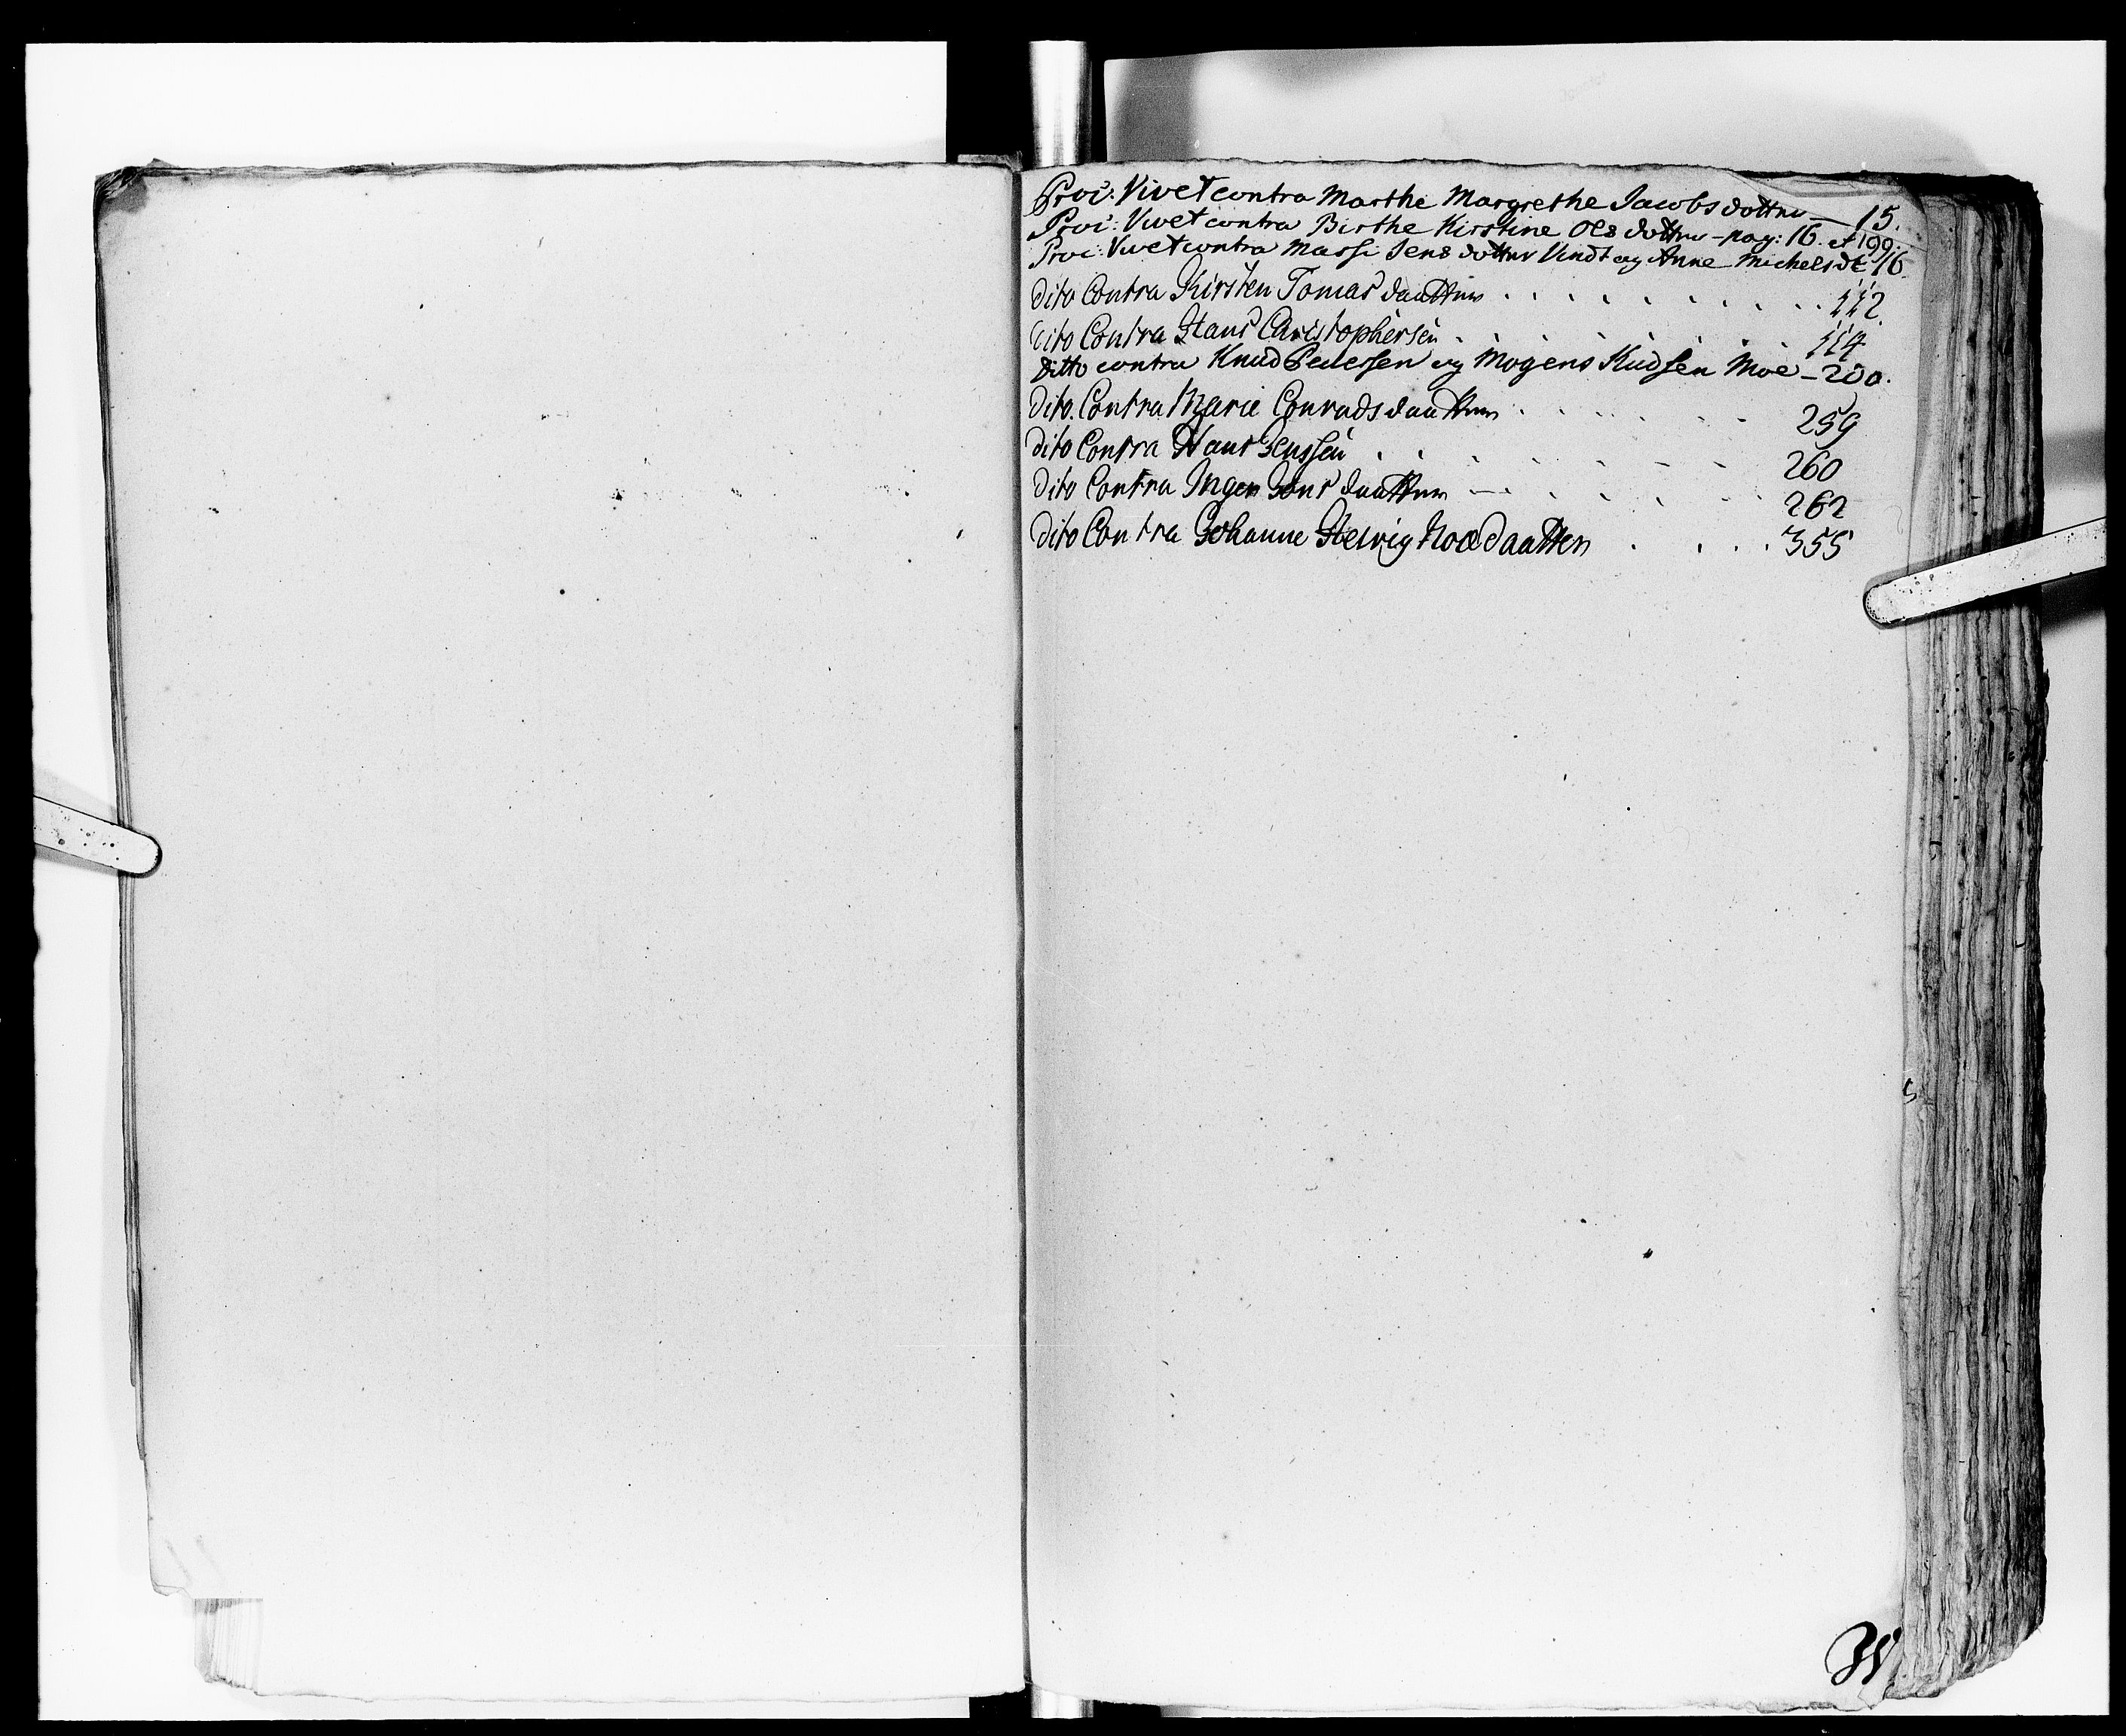 Proc: Vivet contra Marthe Margrethe Jacobsdotter — 15.
Proc: Vivet contra Birthe Kirstine Olsdotter – pag: 16. et 199.
Proc: Vivet contra Massi Jens dotter Vindt og Anne Michelsdt 16.
Dito Contra Kirsten Tomas daatter . . . . . . . . . 112.
Dito Contra Hans Christophersen . . . . . . 114
Ditto contra Knud Pedersen og Mogens Kudsen Moe – 200.
Dito Contra Marie Conrads daatter . . . . . . 259
Dito Contra Hans Jenssen . . . . . . . . 260
Dito Contra Inger Jens daatter — . . . . . 262
Dito Contra Johanne Helvig Noe daatter . . . . 355
W